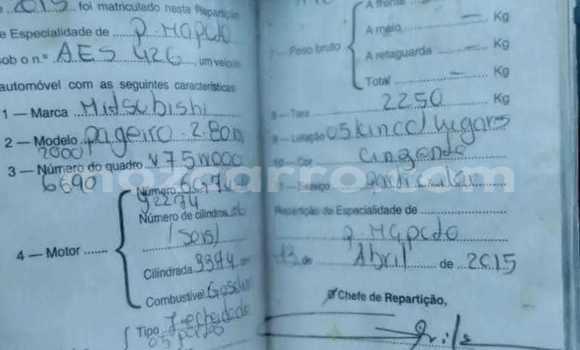 2015 foi matriculado nesta Repartição
e Especialidade de P. Mapcdo
sob o n.º AES 426, um veículo
automóvel com as seguintes características
1 — Marca Midsubishi
2 — Modelo pageiro.2.800
3 — Número do quadro V75W000
6690
4 — Motor
Número 6G74
Número de cilindros 06
(Seis)
Cilindrada
Combustível
Tipo
A frente
A meio — Kg
7 — Peso bruto
A retaguarda — Kg
Total — Kg
8 — Tara 2250 Kg
9 — Lotação 05 lugares
10 — Cor Cinzenda
11 — Serviço
Repartição de Especialidade de
P. Mapcdo
13 de Abril de 2015
Chefe de Repartição,
mozcarro.com